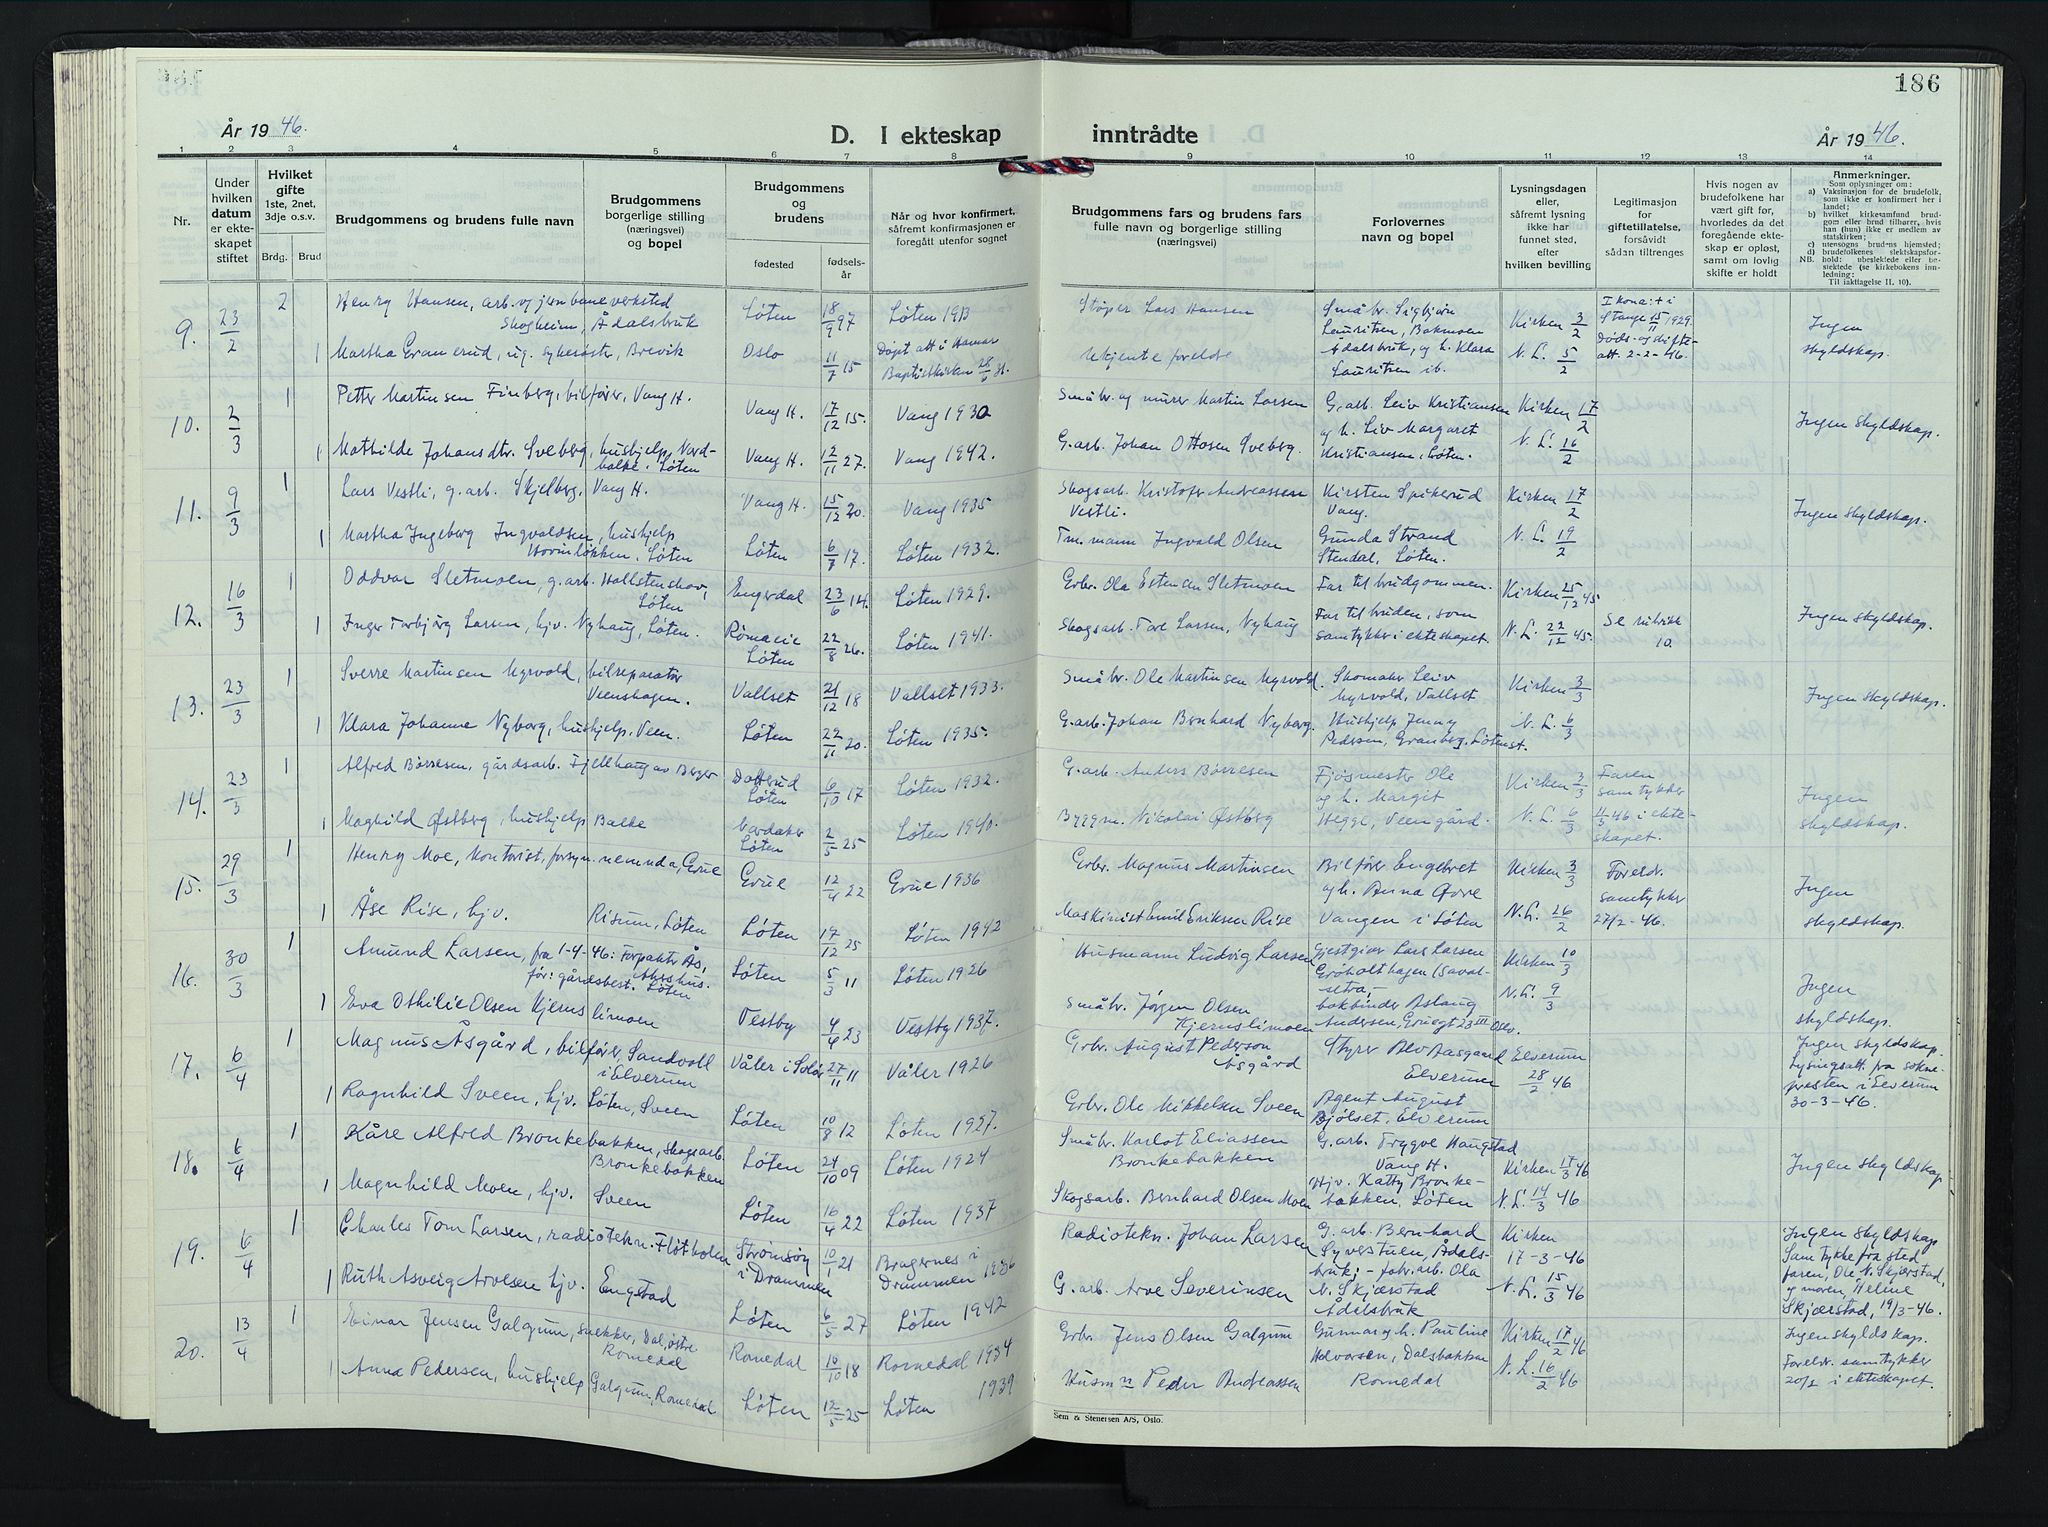 186
År 1946.
D. I ekteskap
inntrådte
År 1946.
1 2 3 4 5 6 7 8 9 10 11 12 13 14
Nr.
Under hvilken datum er ekteskapet stiftet
Hvilket gifte 1ste, 2net, 3dje o.s.v.
Brdg. Brud
Brudgommens og brudens fulle navn
Brudgommens borgerlige stilling (næringsvei) og bopel
Brudgommens og brudens
fødested
fødselsår
Når og hvor konfirmert, såfremt konfirmasjonen er foregått utenfor sognet
Brudgommens fars og brudens fars fulle navn og borgerlige stilling (næringsvei)
Forlovernes navn og bopel
Lysningsdagen eller, såfremt lysning ikke har funnet sted, efter hvilken bevilling
Legitimasjon for giftetillatelse, forsåvidt sådan tiltrenges
Hvis nogen av brudefolkene har vært gift før, hvorledes da det foregående ekteskap er opløst, samt om lovlig skifte er holdt
Anmerkninger.
Som oplysninger om:
a) Vaksinasjon for de brudefolk, som ikke er konfirmert her i landet;
b) hvilket kirkesamfund brudgom eller brud tilhører, hvis han (hun) ikke er medlem av statskirken;
c) utensogns brudens hjemsted;
d) brudefolkenes slektskapsforhold: ubeslektede eller beslektede (se kirkebokens innledning;
NB. Til iakttagelse II, 10).
9. 23/2 2 Henry Hansen, arb. v/ jernbaneverksted
Skogheim, Ådalsbruk Løten 18/9 97 Løten 1913
Støper Lars Hansen
Småbr. Sigbjørn Lauritsen, Bakmoen Ådalsbruk, og h. Klara Lauritzen ib.
Kirken 3/2 N. L. 5/2
I kona: + i Stange 15/11 1929. Døds- og skifteatt. 2-2-46.
Ingen skyldskap.
1 Martha Gramerud, ug. sykesøster, Brevik Oslo 11/7 15 Døpt att i Hamar Baptistkirken 28/6 31.
Ukjente foreldre
10. 2/3 1 Petter Martinsen Finberg, bilfører, Vang H. Vang H. 17/12 15. Vang 1930
Småbr. og murer Martin Larsen
G.arb. Leiv Kristiansen og h. Liv Margaret Kristiansen, Løten.
Kirken 17/2 N. L. 16/2
Ingen skyldskap.
1 Mathilde Johansdtr. Sveberg, hushjelp, Nordbakke, Løten Vang H. 12/11 27. Vang 1942.
G.arb. Johan Ottosen Sveberg.
11. 9/3 1 Lars Vestli, g.arb. Skjelberg, Vang H. Vang H. 15/12 20. Vang 1935
Skogsarb. Kristofr Andreassen Vestli.
Kirsten Spikerud Vang.
Gunda Strand Stendal, Løten.
Kirken 17/2 N. L. 19/2
Ingen skyldskap.
1 Martha Ingeborg Ingvaldsen, hushjelp Løten Løten 6/7 17. Løten 1932.
Tm.mann Ingvald Olsen
12. 16/3 1 Oddvar Sletmoen, g.arb. Hallstenshov, Løten Engerdal 23/6 14. Løten 1929.
Grbr. Ola Estensen Sletmoen
Far til brudgommen.
Far til bruden, som samtykker i ekteskapet.
Kirken 25/12 45. N. L. 22/12 45.
Se rubrikk 10.
Ingen skyldskap.
1 Inger Torbjørg Larsen, hjv. Nyhaug, Løten. Løten 22/8 26. Løten 1941.
Skogsarb. Tore Larsen, Nyhaug
13. 23/3 1 Sverre Martinsen Myrvold, bilreparatør Veenshagen. Vallset 21/12 18 Vallset 1933.
Småbr. Ole Martinsen Myrvold.
Skomaker Leiv Myrvold, Vallset
Hushjelp Jenny Pedersen, Granberg, Løtenst.
Kirken 3/3 N. L. 6/3
Ingen skyldskap.
1 Klara Johanne Nyborg, hushjelp, Veen. Løten 22/11 20. Løten 1935.
G.arb. Johan Bernhard Nyborg.
14. 23/3 1 Alfred Børresen, gårdsarb. Fjellhaug av Berger Løten 6/10 17 Løten 1932.
G.arb. Anders Børresen
Fjøsmester Ole og h. Margit Hegge, Veen gård.
Kirken 3/3 N. L. 6/3
Faren samtykker 4/3 46 i ekteskapet.
Ingen skyldskap.
1 Maghild Østberg, hushjelp Balke Løten 2/5 25 Løten 1940.
Byggm. Nikolai Østberg
15. 29/3 1 Henry Moe, kontorist, forsyn.nemnda, Grue Grue 12/4 22 Grue 1936
Grbr. Magnus Martinsen
Bilfører Engebret og h. Anna Øvre Vangen i Løten
Kirken 3/3 N. L. 26/2
Foreldr. samtykker 27/2-46.
Ingen skyldskap.
1 Åse Rise, hjv. Risum, Løten Løten 17/12 25 Løten 1942
Maskinist Emil Eriksen Rise
16. 30/3 1 Amund Larsen, fra 1-4-46: Forpakter Ås, Akershus. før: gårdsbest. Løten Løten 5/3 11 Løten 1926
Husmann Ludvig Larsen
Gjestgiver Lars Larsen
bokbinder Aslaug Andersen, Oslo.
Kirken 10/3 N. L. 9/3
Ingen skyldskap.
1 Eva Othilie Olsen Kjernslimoen Vestby 4/4 23 Vestby 1937.
Småbr. Jørgen Olsen Kjernslimoen
17. 6/4 1 Magnus Åsgård, bilfører, Sandvoll i Elverum Våler i Solør 27/11 11 Våler 1926
Grbr. August Pederson Åsgård
Styrer Alv Aasgaard Elverum
Agent August Bjølset, Elverum
Elverum 28/2 46
Ingen skyldskap. Lysningsatt. fra soknepresten i Elverum 30-3-46.
1 Ragnhild Sveen, hjv. Løten, Sveen Løten 10/8 12 Løten 1927.
Grbr. Ole Mikkelsen Sveen
18. 6/4 1 Kåre Alfred Bronkebakken, skogsarb. Bronkebakken Løten 24/10 09 Løten 1924
Småbr. Karlot Eliassen Bronkebakken
G. arb. Trygve Haugstad Vang H.
Hjv. Katty Bronkebakken, Løten
Kirken 17/3 46 N. L. 14/3 46
Ingen skyldskap
1 Magnhild Moen, hjv. Sveen Løten 16/4 22 Løten 1937
Skogsarb. Bernhard Olsen Moen
19. 6/4 1 Charles Tom Larsen, radiotekn. Fløtholen Strømsøy i Drammen 10/1 21 Bragernes i Drammen 1936
Radiotekn. Johan Larsen
G. arb. Bernhard Syverstuen, Ådalsbruk; - fabr.arb. Ola N. Skjærstad Ådalsbruk
Kirken 17-3-46 N. L. 15/3 46
Ingen skyldskap Samtykke fra stedfaren, Ole N. Skjærstad, og moren, Heline Skjærstad, 19/3-46.
1 Ruth Asveig Arvesen hjv. Engstad
G. arb. Arve Severinsen
20. 13/4 1 Einar Jensen Galgum, snekker, Dal, østre Romedal Løten 6/5 27 Løten 1942
Romedal 10/10 18 Romedal 1934
Grbr. Jens Olsen Galgum
Gunnar og h. Pauline Halvorsen, Dalsbakken Romedal
Kirken 17/2 46 N. L. 16/2 46
Ingen skyldskap. Foreldr. samtykker 20/2 i ekteskapet.
1 Anna Pedersen, hushjelp Galgum, Romedal Løten 12/5 25 Løten 1939
Husmn Peder Andreassen
Sem & Stenersen A/S, Oslo.